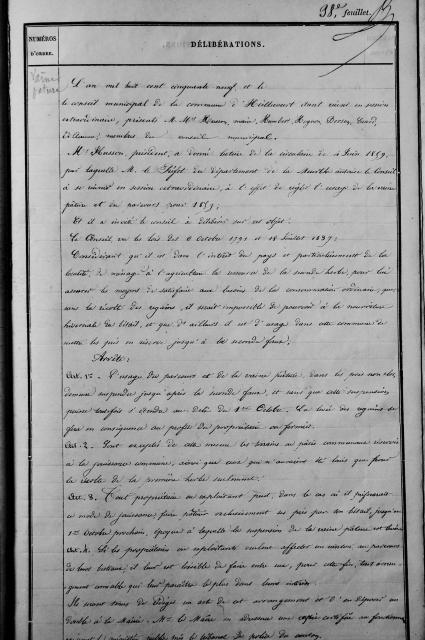 98.e feuillet.
NUMÉROS
D'ORDRE.
DÉLIBÉRATIONS.
Vaine
pâture
L'an mil huit cent cinquante neuf, et le
le conseil municipal de la commune d' étant réuni en session
extraordinaire, présents M. Mrs Husson, maire, Humbert,
membres du conseil municipal.
Mr Husson, président, a donné lecture de la circulaire du 4 Juin 1859,
par laquelle M. le Préfet du département de la Meurthe autorise le Conseil
à se réunir en session extraordinaire, à l'effet de régler l'usage de la vaine
pâture et du parcours pour 1859;
Et il a invité le conseil à délibérer sur cet objet.
Le Conseil, vu les lois des 6 Octobre 1791 et 18 Juillet 1837;
Considérant qu'il est dans l'intérêt du pays et particulièrement de la
localité, de ménager à l'agriculteur la ressource de la seconde herbe, pour lui
assurer les moyens de satisfaire aux besoins de la consommation ordinaire, que,
sans la récolte des regains, il serait impossible de pourvoir à la nourriture
hivernale du bétail, et que d'ailleurs il est d'usage dans cette commune de
mettre les prés en réserve jusqu'à la seconde faux;
Arrête:
Art. 1er. L'usage du parcours et de la vaine pâture, dans les prés non clos,
demeure suspendu jusqu'après la seconde faux, et sans que cette suspension
puisse toutefois s'étendre au delà du 1er Octobre. La levée des regains se
fera en conséquence au profit des propriétaires ou fermiers.
Art. 2. Sont exceptés de cette mesure les terrains en pâtis communaux réservés
à la jouissance commune, ainsi que ceux qui n'auraient été loués que pour
la récolte de la première herbe seulement.
Art. 3. Tout propriétaire ou exploitant peut, dans le cas où il préférerait
ce mode de jouissance, faire pâturer exclusivement ses prés par son bétail, jusqu'au
1er Octobre prochain, époque à laquelle la suspension de la vaine pâture est levée.
Art. 4. Si les propriétaires ou exploitants veulent affecter en commun au parcours
de leurs bestiaux, il leur est loisible de faire entre eux, pour cette fin, tout arran-
gement amiable qui leur paraîtra le plus dans leurs intérêts.
Ils seront tenus de rédiger un acte de cet arrangement et d'en déposer un
double à la Mairie. M. le Maire en adressera une copie certifiée au fonctionnaire
public près le tribunal de police du canton.